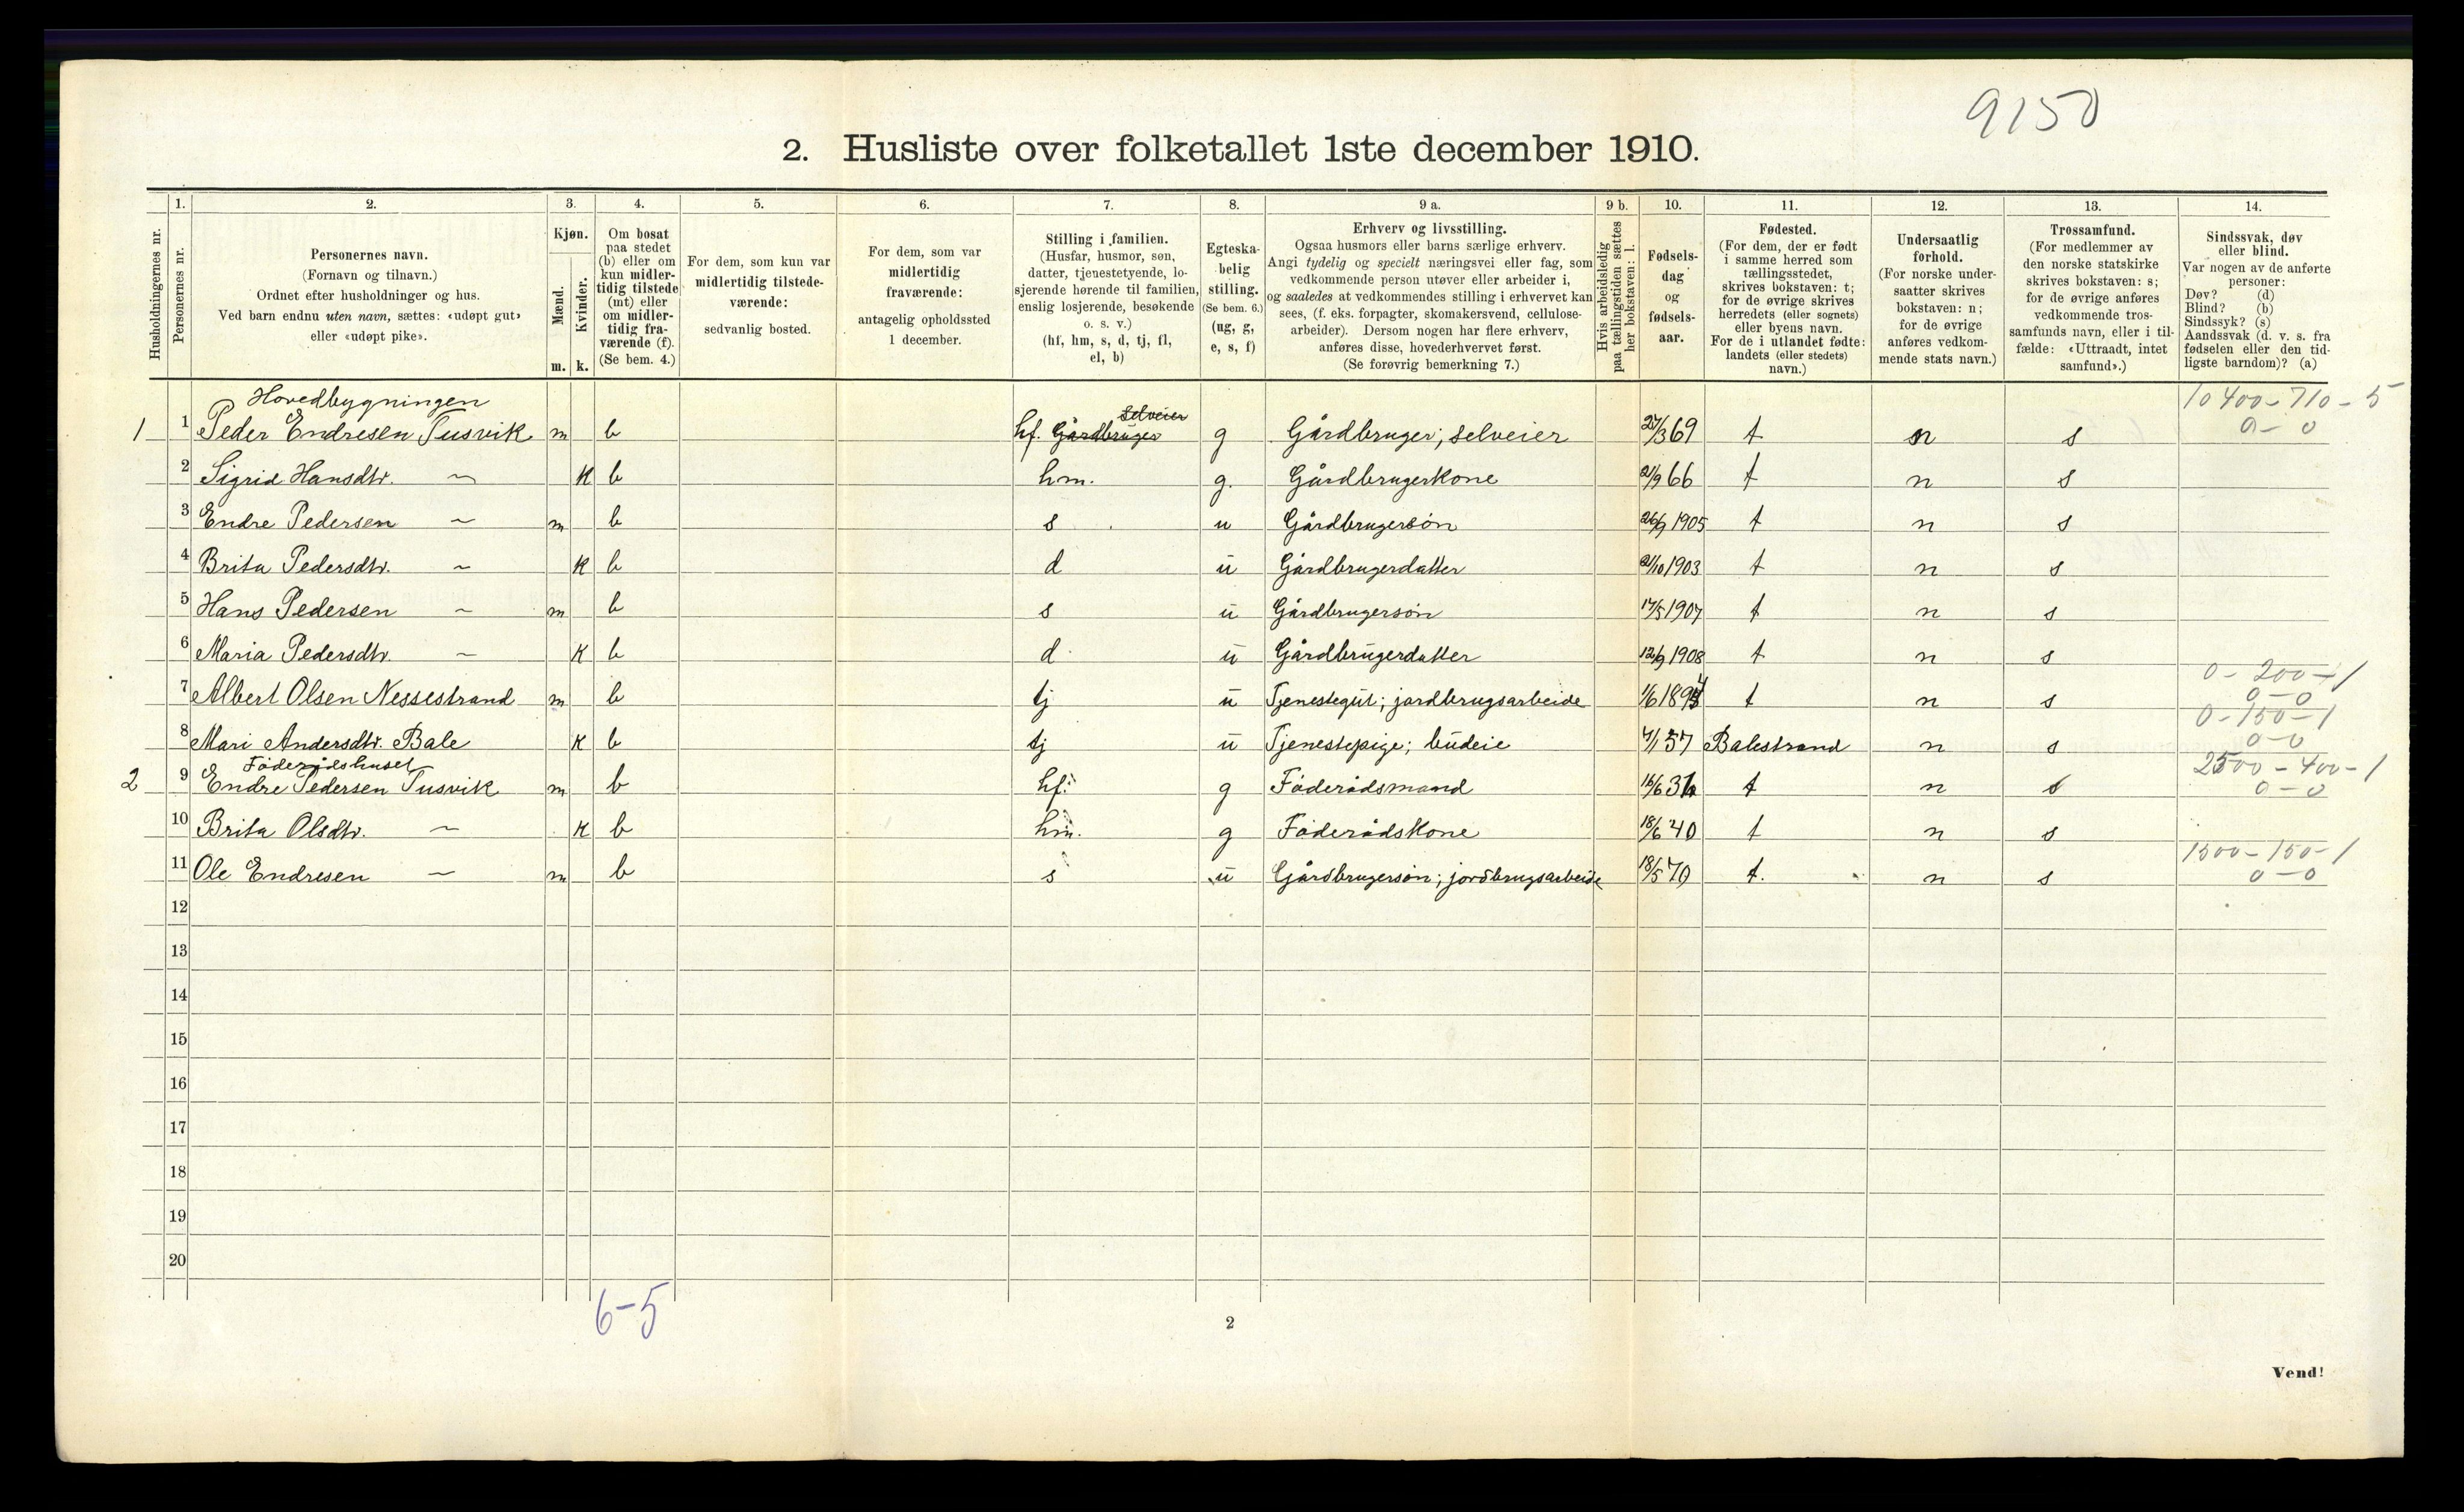 9150
2. Husliste over folketallet 1ste december 1910.
Husholdningernes nr.
1. Personernes nr.
2. Personernes navn.
(Fornavn og tilnavn.)
Ordnet efter husholdninger og hus.
Ved barn endnu uten navn, sættes: «udøpt gut»
eller «udøpt pike».
3. Kjøn.
Mænd. Kvinder.
m. k.
4. Om bosat
paa stedet
(b) eller om
kun midler-
tidig tilstede
(mt) eller
om midler-
tidig fra-
værende (f).
(Se bem. 4.)
5. For dem, som kun var
midlertidig tilstede-
værende:
sedvanlig bosted.
6. For dem, som var
midlertidig
fraværende:
antagelig opholdssted
1 december.
7. Stilling i familien.
(Husfar, husmor, søn,
datter, tjenestetyende, lo-
sjerende hørende til familien,
enslig losjerende, besøkende
o. s. v.)
(hf, hm, s, d, tj, fl,
el, b)
8. Egteska-
belig
stilling.
(Se bem. 6.)
(ug, g,
e, s, f)
9 a. Erhverv og livsstilling.
Ogsaa husmors eller barns særlige erhverv.
Angi tydelig og specielt næringsvei eller fag, som
vedkommende person utøver eller arbeider i,
og saaledes at vedkommendes stilling i erhvervet kan
sees, (f. eks. forpagter, skomakersvend, cellulose-
arbeider). Dersom nogen har flere erhverv,
anføres disse, hovederhvervet først.
(Se forøvrig bemerkning 7.)
9 b. Hvis arbeidsledig
paa tællingstiden sættes
her bokstaven: l.
10. Fødsels-
dag
og
fødsels-
aar.
11. Fødested.
(For dem, der er født
i samme herred som
tællingsstedet,
skrives bokstaven: t;
for de øvrige skrives
herredets (eller sognets)
eller byens navn.
For de i utlandet fødte:
landets (eller stedets)
navn.)
12. Undersaatlig
forhold.
(For norske under-
saatter skrives
bokstaven: n;
for de øvrige
anføres vedkom-
mende stats navn.)
13. Trossamfund.
(For medlemmer av
den norske statskirke
skrives bokstaven: s;
for de øvrige anføres
vedkommende tros-
samfunds navn, eller i til-
fælde: «Uttraadt, intet
samfund».)
14. Sindssvak, døv
eller blind.
Var nogen av de anførte
personer:
Døv? (d)
Blind? (b)
Sindssyk? (s)
Aandssvak (d. v. s. fra
fødselen eller den tid-
ligste barndom)? (a)
Hovedbygningen Selveier 10400-710-5
1 1 Peder Endresen Tusvik m b hf. Gårdbruger g Gårdbruger; selveier 27/3 69 t n s 0-0
2 Sigrid Hansdtr. ~ K b hm. g. Gårdbrugerkone 21/9 66 t n s
3 Endre Pedersen ~ m b s u Gårdbrugersön 26/9 1905 t n s
4 Brita Pedersdtr. ~ K b d u Gårdbrugerdatter 21/10 1903 t n s
5 Hans Pedersen ~ m b s u Gårdbrugersön 17/5 1907 t n s
6 Maria Pedersdtr. ~ K b d u Gårdbrugerdatter 12/9 1908 t n s
0-200-1
7 Albert Olsen Nessestrand m b tj u Tjenestegut; jordbrugsarbeide 1/6 189 t n s 0-0
0-150-1
8 Mari Andersdtr. Bale K b tj u Tjenestepige; budeie 4/1 57 Balestrand n s 0-0
Föderådshuset 2500-400-1
2 9 Endre Pedersen Tusvik m b hf. g Föderådsmand t n s 0-0
10 Brita Olsdtr. ~ K b hm. g Föderådskone 18/6 40 t n s
1500-150-1
11 Ole Endresen ~ m b s u Gårdbrugersön; jordbrugsarbeide 18/5 70 t. n s 0-0
12
13
14
15
16
17
18
19
20
6-5
2
Vend!